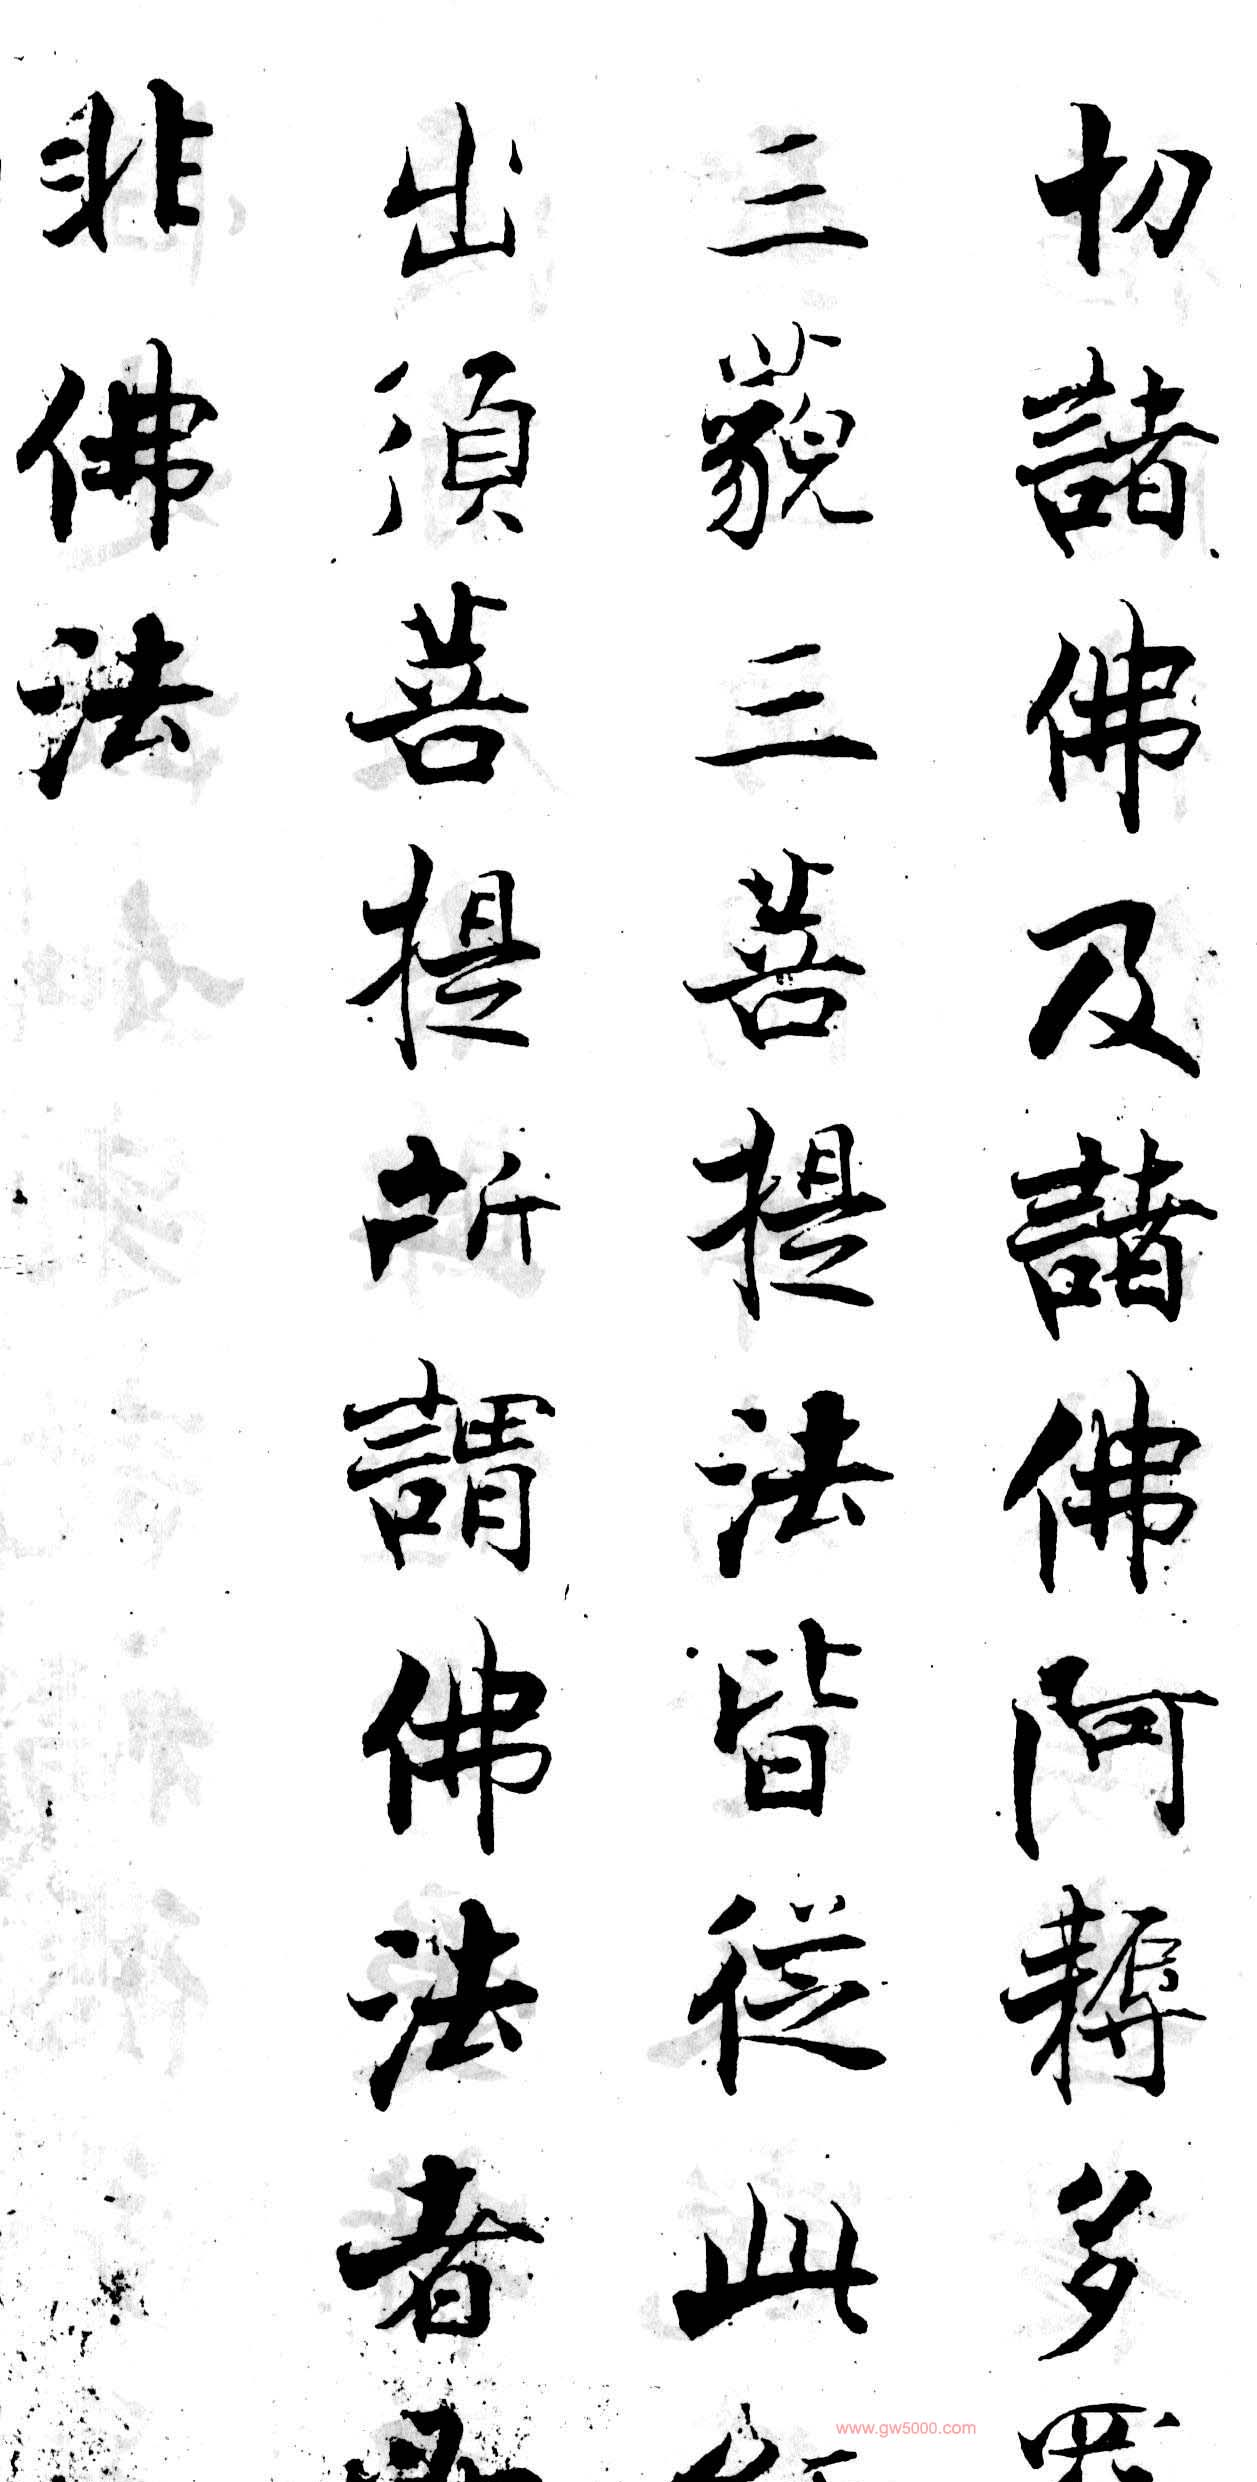 切諸佛及諸佛阿耨多
三藐三菩提法皆從此
出須菩提所謂佛法者
非佛法
www.gw5000.com